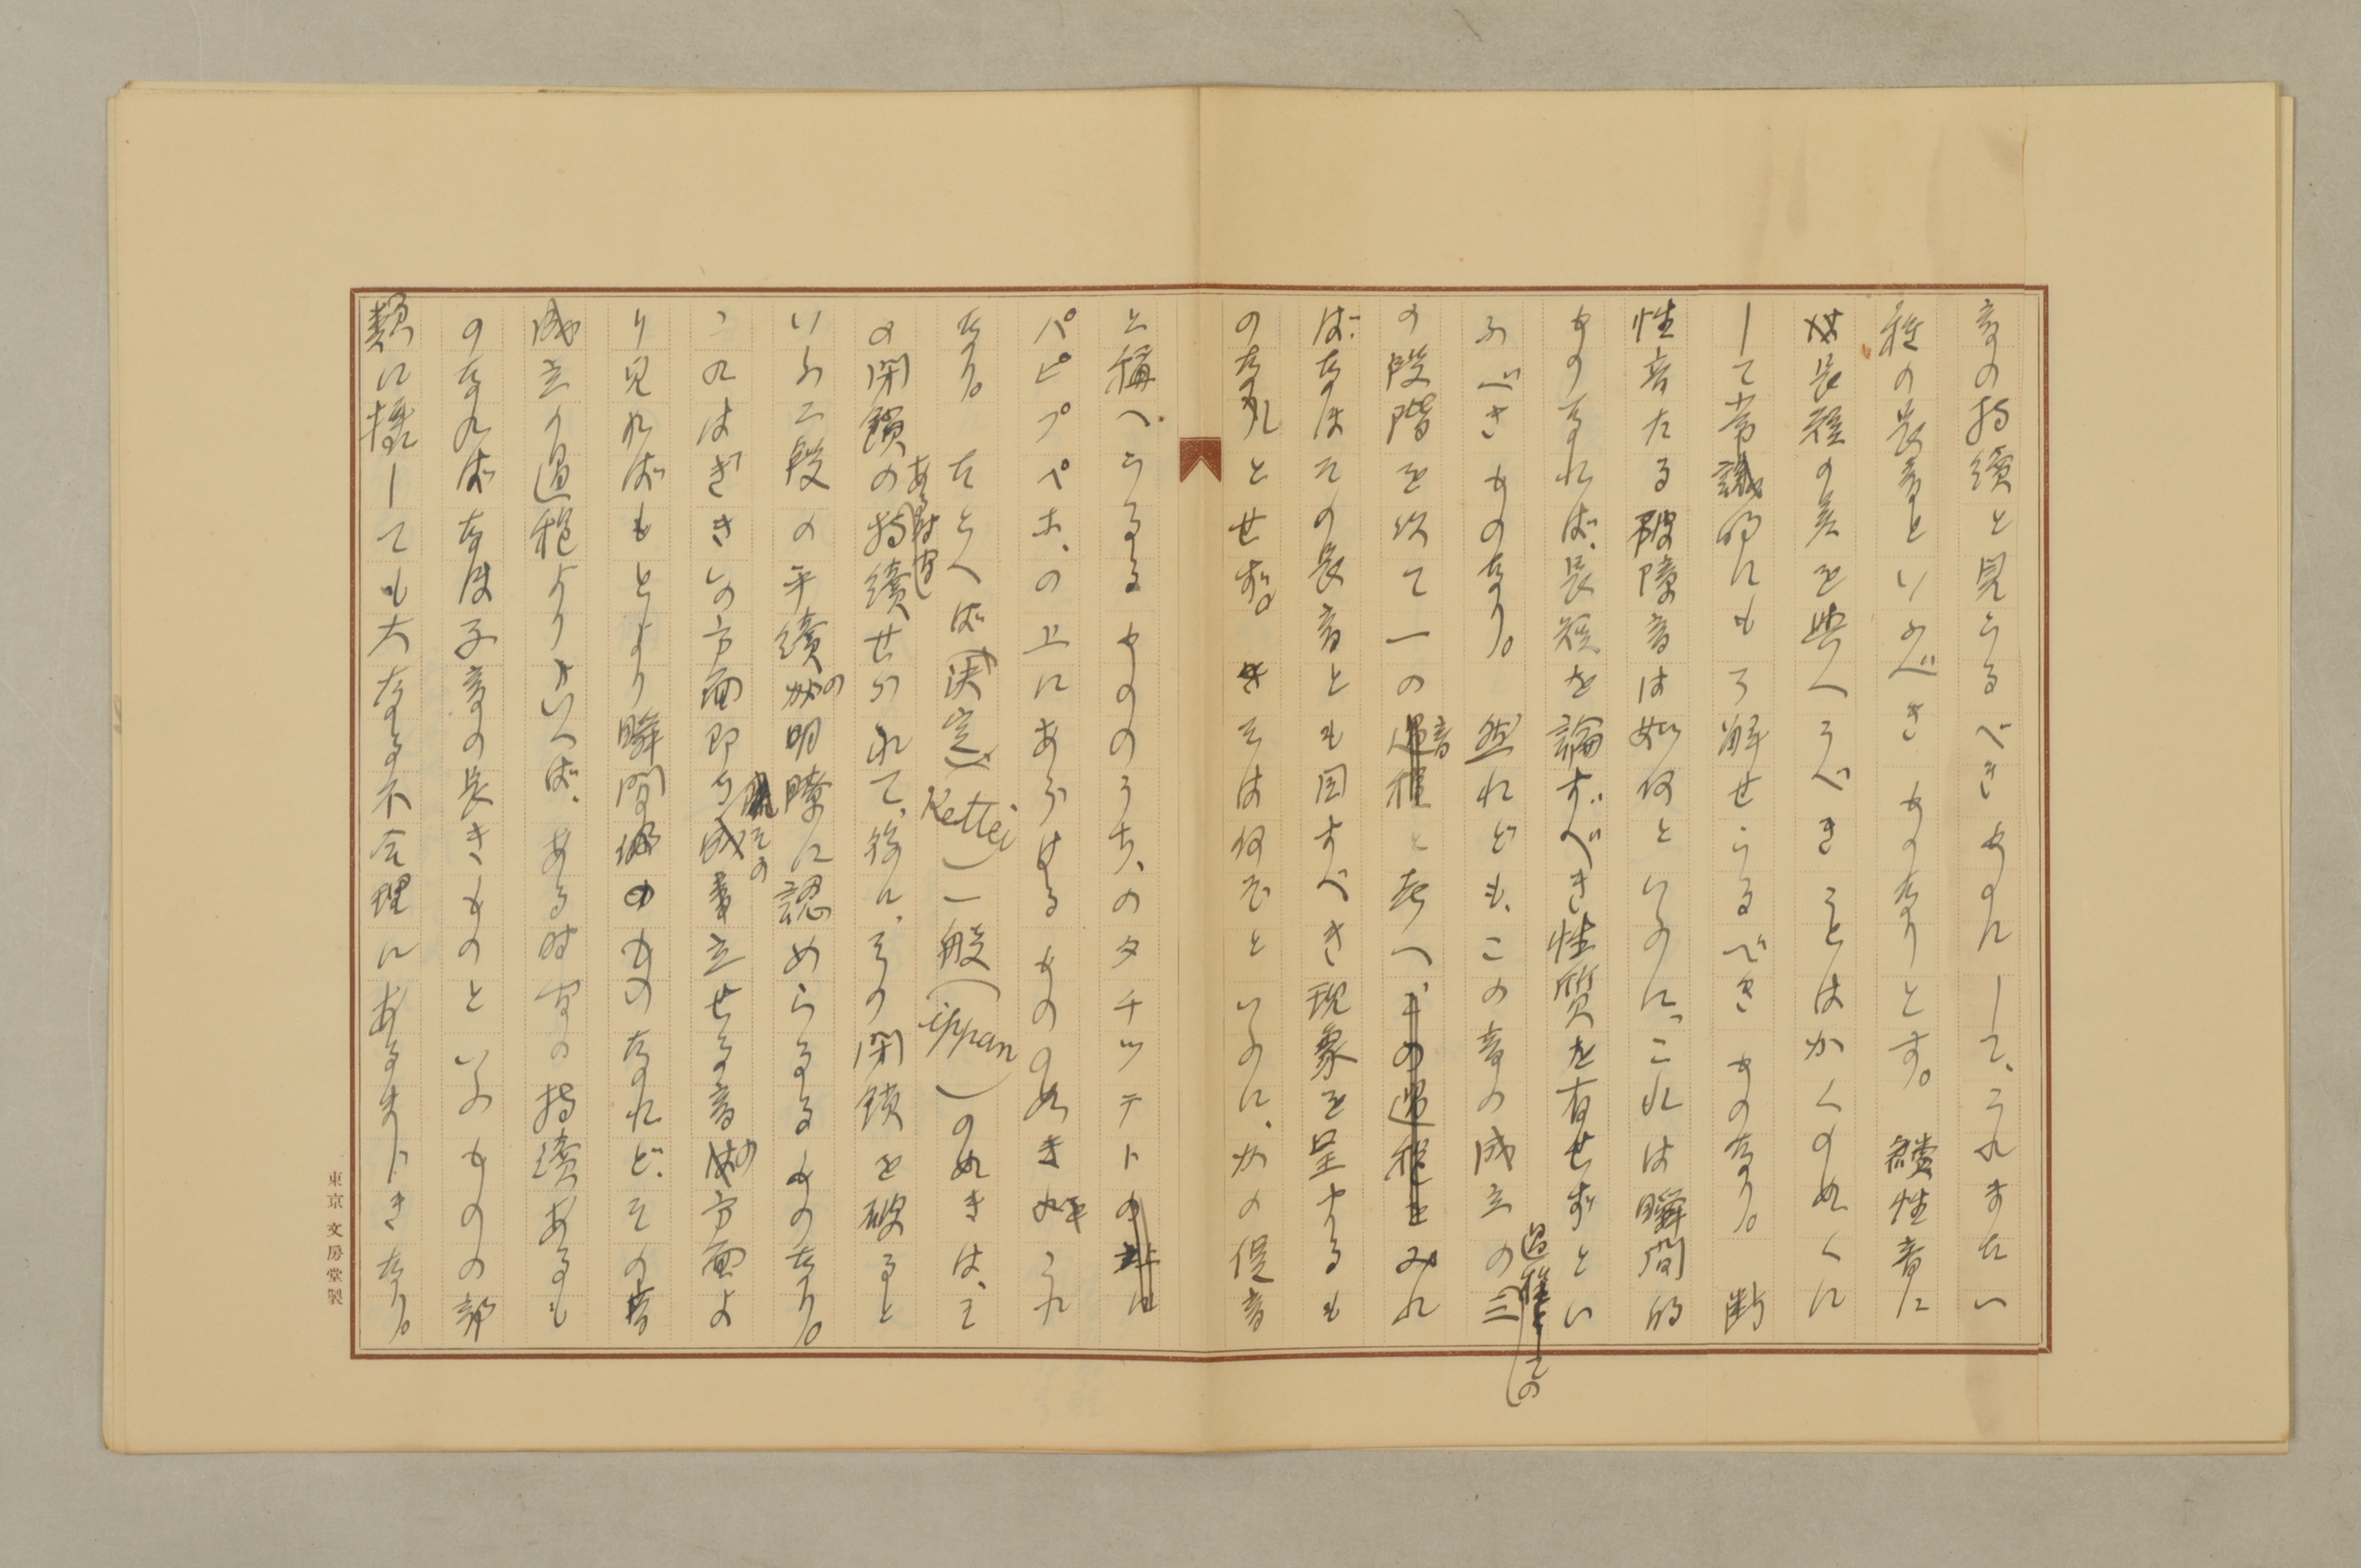 音の持續と見らるべきものにして、これまたい
種の長音といふべきものなりとす。續性音に
長短の差を與へうべきことはかくのめくに
して常識的にも了解せらるべきものなり。断
性音たる破障音は如何といふに、これは瞬間的
ものなれば、長短を論ずべき性質を有せずとい
ふべきものなり。然れども、この音の成立の三
過程としての
の段階を以て一の音と考へみれ
ばなほその長音とも目すべき現象を呈するも
のなしとせず。そは何ぞといふに、かの促音
と稱へらるるもののうち、のタチツテト
パピプペホ、の上にあらはるるもの如きこれ
なり。たとへば(決定)(Kettei)一般(ippan)の如きは、そ
の閉鎖のある時間持續せられて、後に、その閉鎖を破ると
いふ二段の手續の明瞭に認めらるるものなり。
こはのはぎきいの方面即ちその成立せる音の方面よ
り見ればもとより瞬間のものなれど、その音
成立の過程よりいへば、ある時間の持續あるも
のなればなほ子音の長きものといふものの部
類に攝しても大なる不合理にあるまじきなり。
東京 文房堂製